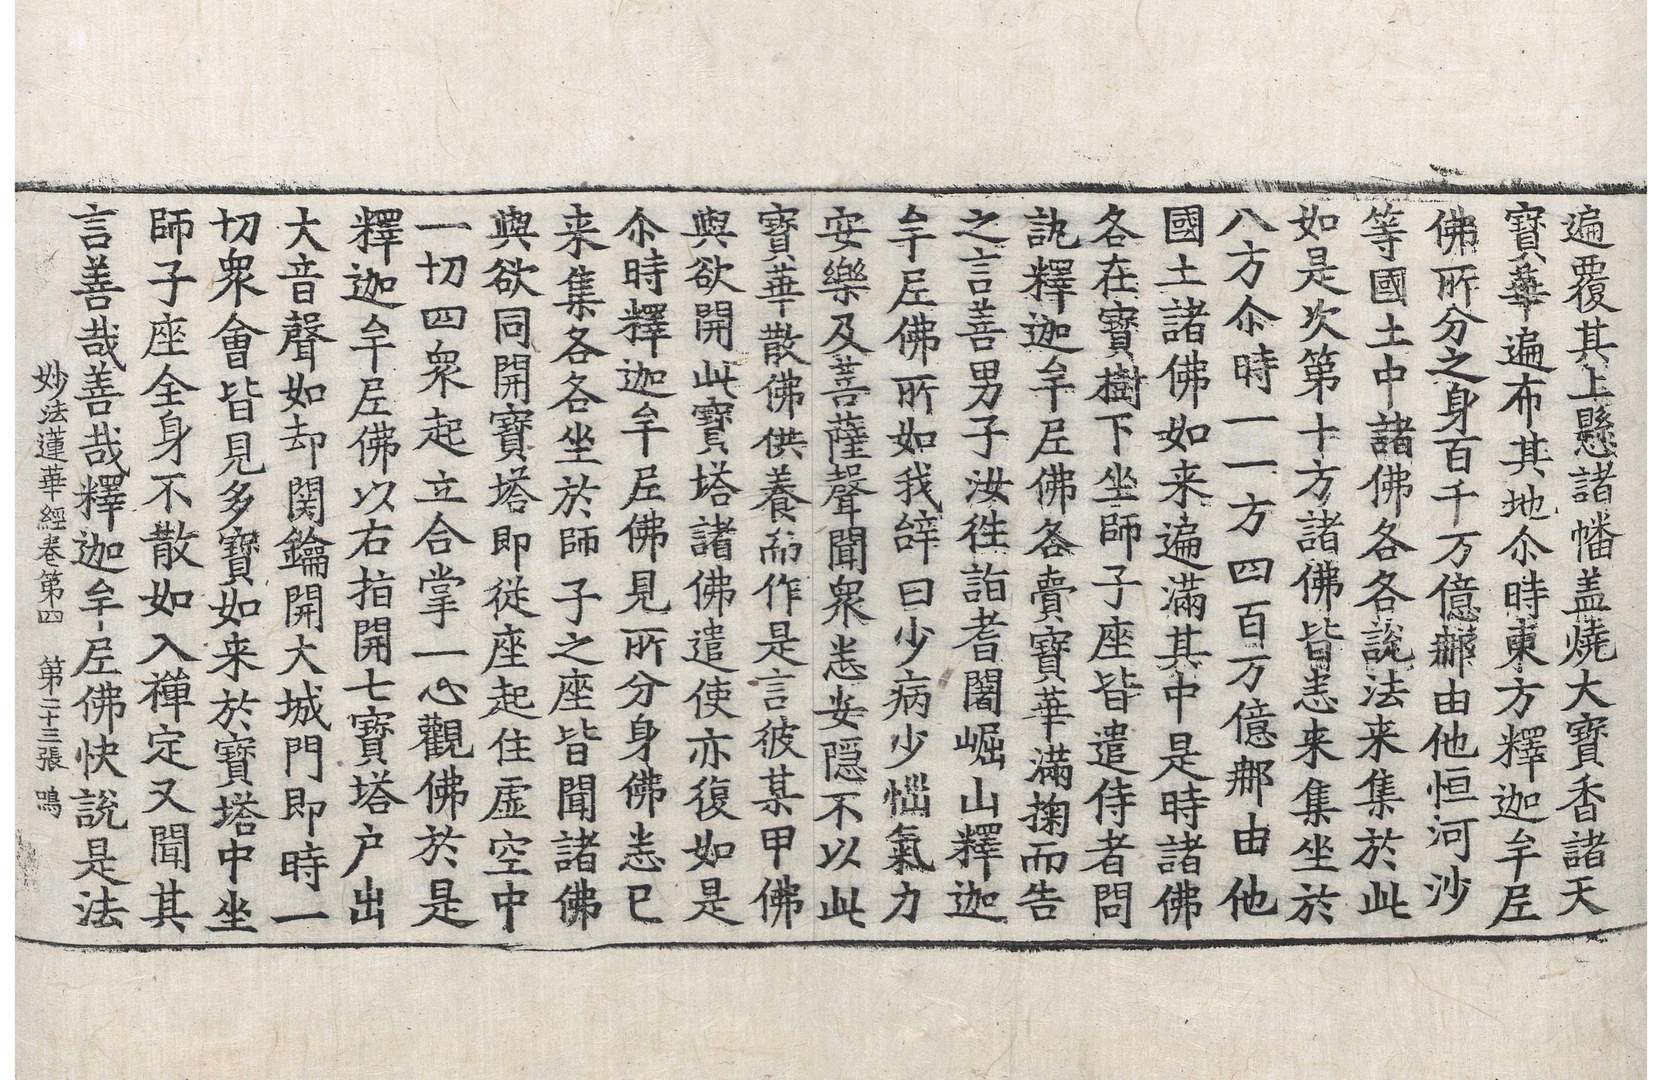 遍覆其上懸諸幡盖燒大寶香諸天
寶華遍布其地尒時東方釋迦牟尼
佛所分之身百千万億𨚗由他恒河沙
等國土中諸佛各各說法来集於此
如是次第十方諸佛皆悉来集坐於
八方尒時一一方四百万億𨚗由他
國土諸佛如来遍滿其中是時諸佛
各在寶樹下坐師子座皆遣侍者問
訊釋迦牟尼佛各賷寶華滿掬而告
之言善男子汝往詣耆闍崛山釋迦
牟尼佛所如我辝曰少病少惱氣力
安樂及菩薩聲聞衆悉安隱不以此
寶華散佛供養而作是言彼某甲佛
與欲開此寶塔諸佛遣使亦復如是
尒時釋迦牟尼佛見所分身佛悉已
来集各各坐於師子之座皆聞諸佛
與欲同開寶塔即從座起住虛空中
一切四衆起立合掌一心觀佛於是
釋迦牟尼佛以右指開七寶塔户出
大音聲如却関鑰開大城門即時一
切衆會皆見多寶如来於寶塔中坐
師子座全身不散如入禪定又聞其
言善哉善哉釋迦牟尼佛快說是法
妙法蓮華經卷第四 第二十三張 鳴